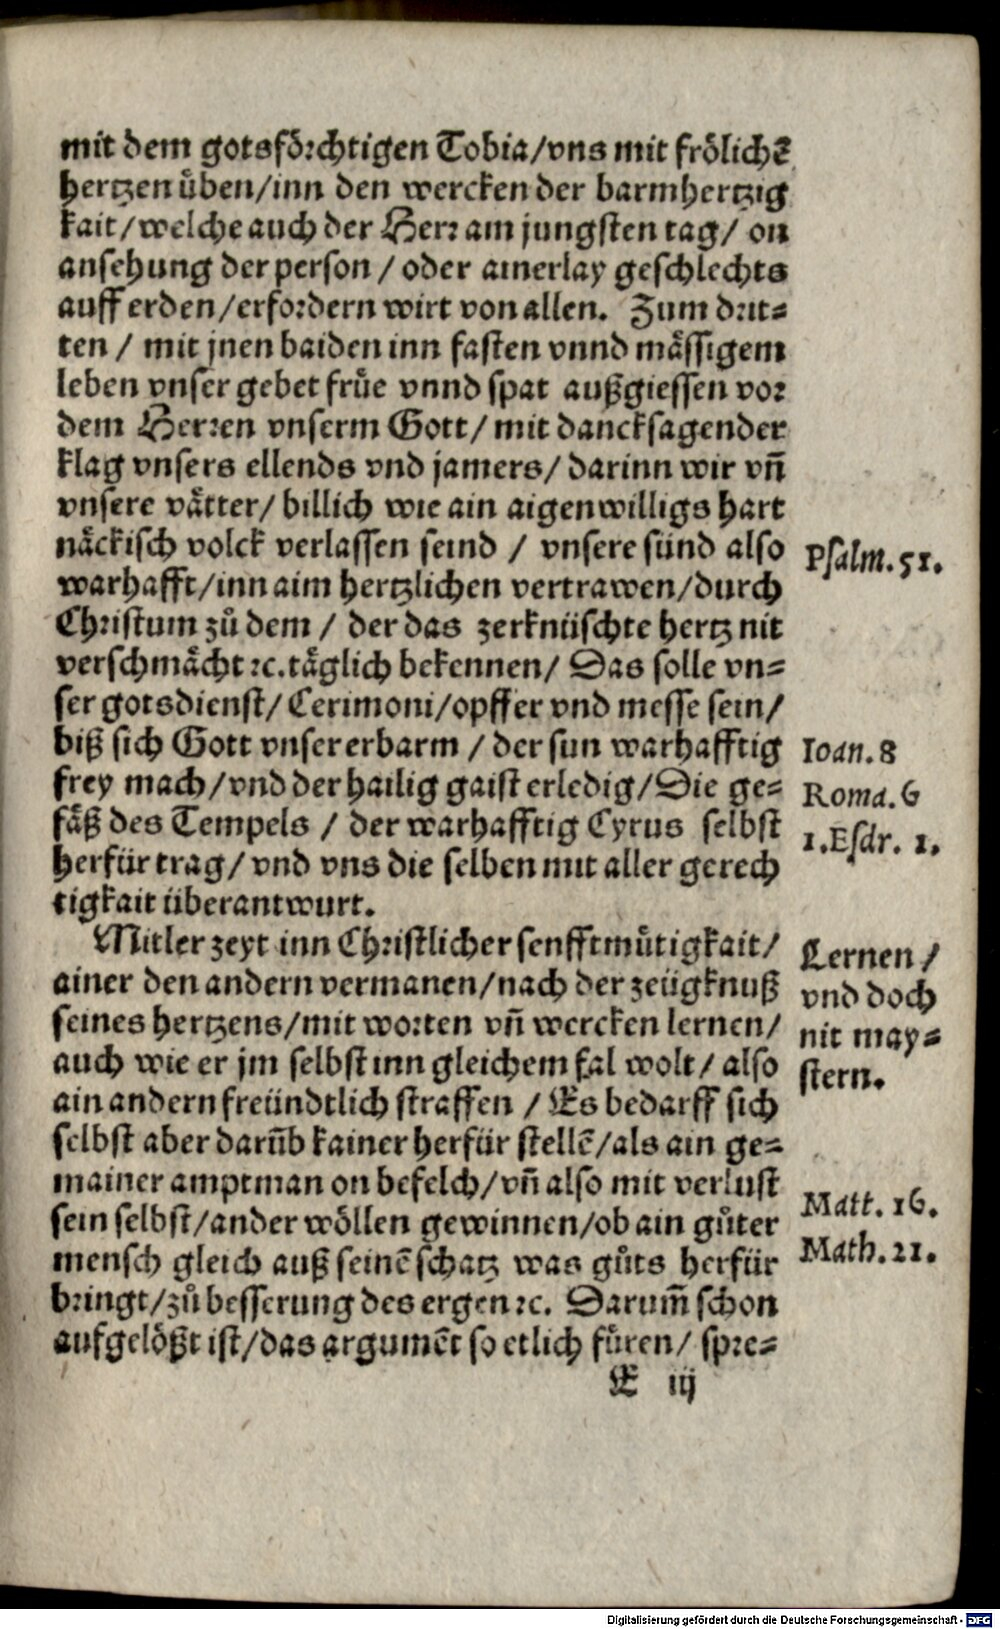 mit dem gotsförchtigen Tobia/vns mit frölichẽ
hertzen üben/inn den wercken der barmhertzig
kait/welche auch der Herr am jungsten tag/ on
ansehung der person / oder ainerlay geschlechts
auff erden/erfordern wirt von allen. Zum drit=
ten / mit jnen baiden inn fasten vnnd mässigem
leben vnser gebet früe vnnd spat außgiessen vor
dem Herren vnserm Gott/ mit dancksagender
klag vnsers ellends vnd jamers/ darinn wir vñ
vnsere vätter/ billich wie ain aigenwilligs hart
näckisch volck verlassen seind / vnsere sünd also
Psalm. 51.
warhafft/inn aim hertzlichen vertrawen/durch
Christum zů dem / der das zerknüschte hertz nit
verschmächt ꝛc. täglich bekennen/ Das solle vn=
ser gotsdienst/ Cerimoni/opffer vnd messe sein/
biß sich Gott vnser erbarm / der sun warhafftig
Ioan. 8
frey mach/vnd der hailig gaist erledig/Die ge=
Roma. 6
fäß des Tempels / der warhafftig Cyrus selbst
1. Esdr. 1.
herfür trag/ vnd vns die selben mit aller gerech
tigkait überantwurt.
Mitler zeyt inn Christlicher senfftmütigkait/
Lernen /
ainer den andern vermanen/nach der zeügknuß
vnd doch
seines hertzens/mit worten vñ wercken lernen/
nit may=
auch wie er jm selbst inn gleichem fal wolt/ also
stern.
ain andern freündtlich straffen / Es bedarff sich
selbst aber darũb kainer herfür stellẽ/als ain ge=
mainer amptman on befelch/vñ also mit verlust
Matt. 16.
sein selbst/ander wöllen gewinnen/ob ain gůter
mensch gleich auß seinẽ schatz was gůts herfür
Math. 21.
bringt/zů besserung des ergen ꝛc. Darum̃ schon
aufgelößt ist/das argumẽt so etlich füren/ spre=
E iij
Digitalisierung gefördert durch die Deutsche Forschungsgemeinschaft - DFG